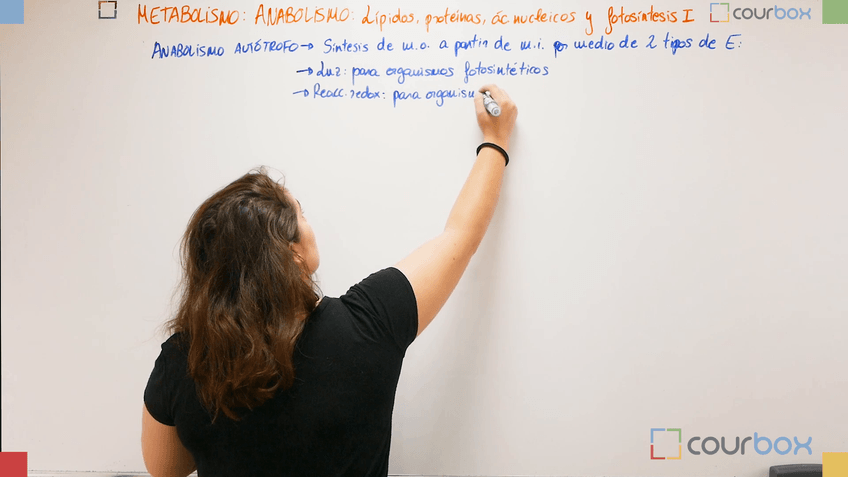 METABOLISMO: ANABOLISMO: Lípidos, proteínas, ác nucleicos y fotosíntesis I
courbox
ANABOLISMO AUTÓTROFO → Síntesis de m.o. a partir de m.i. por medio de 2 tipos de E:
→ Luz: para organismos fotosintéticos
→ Reacc. redox: para organism
courbox